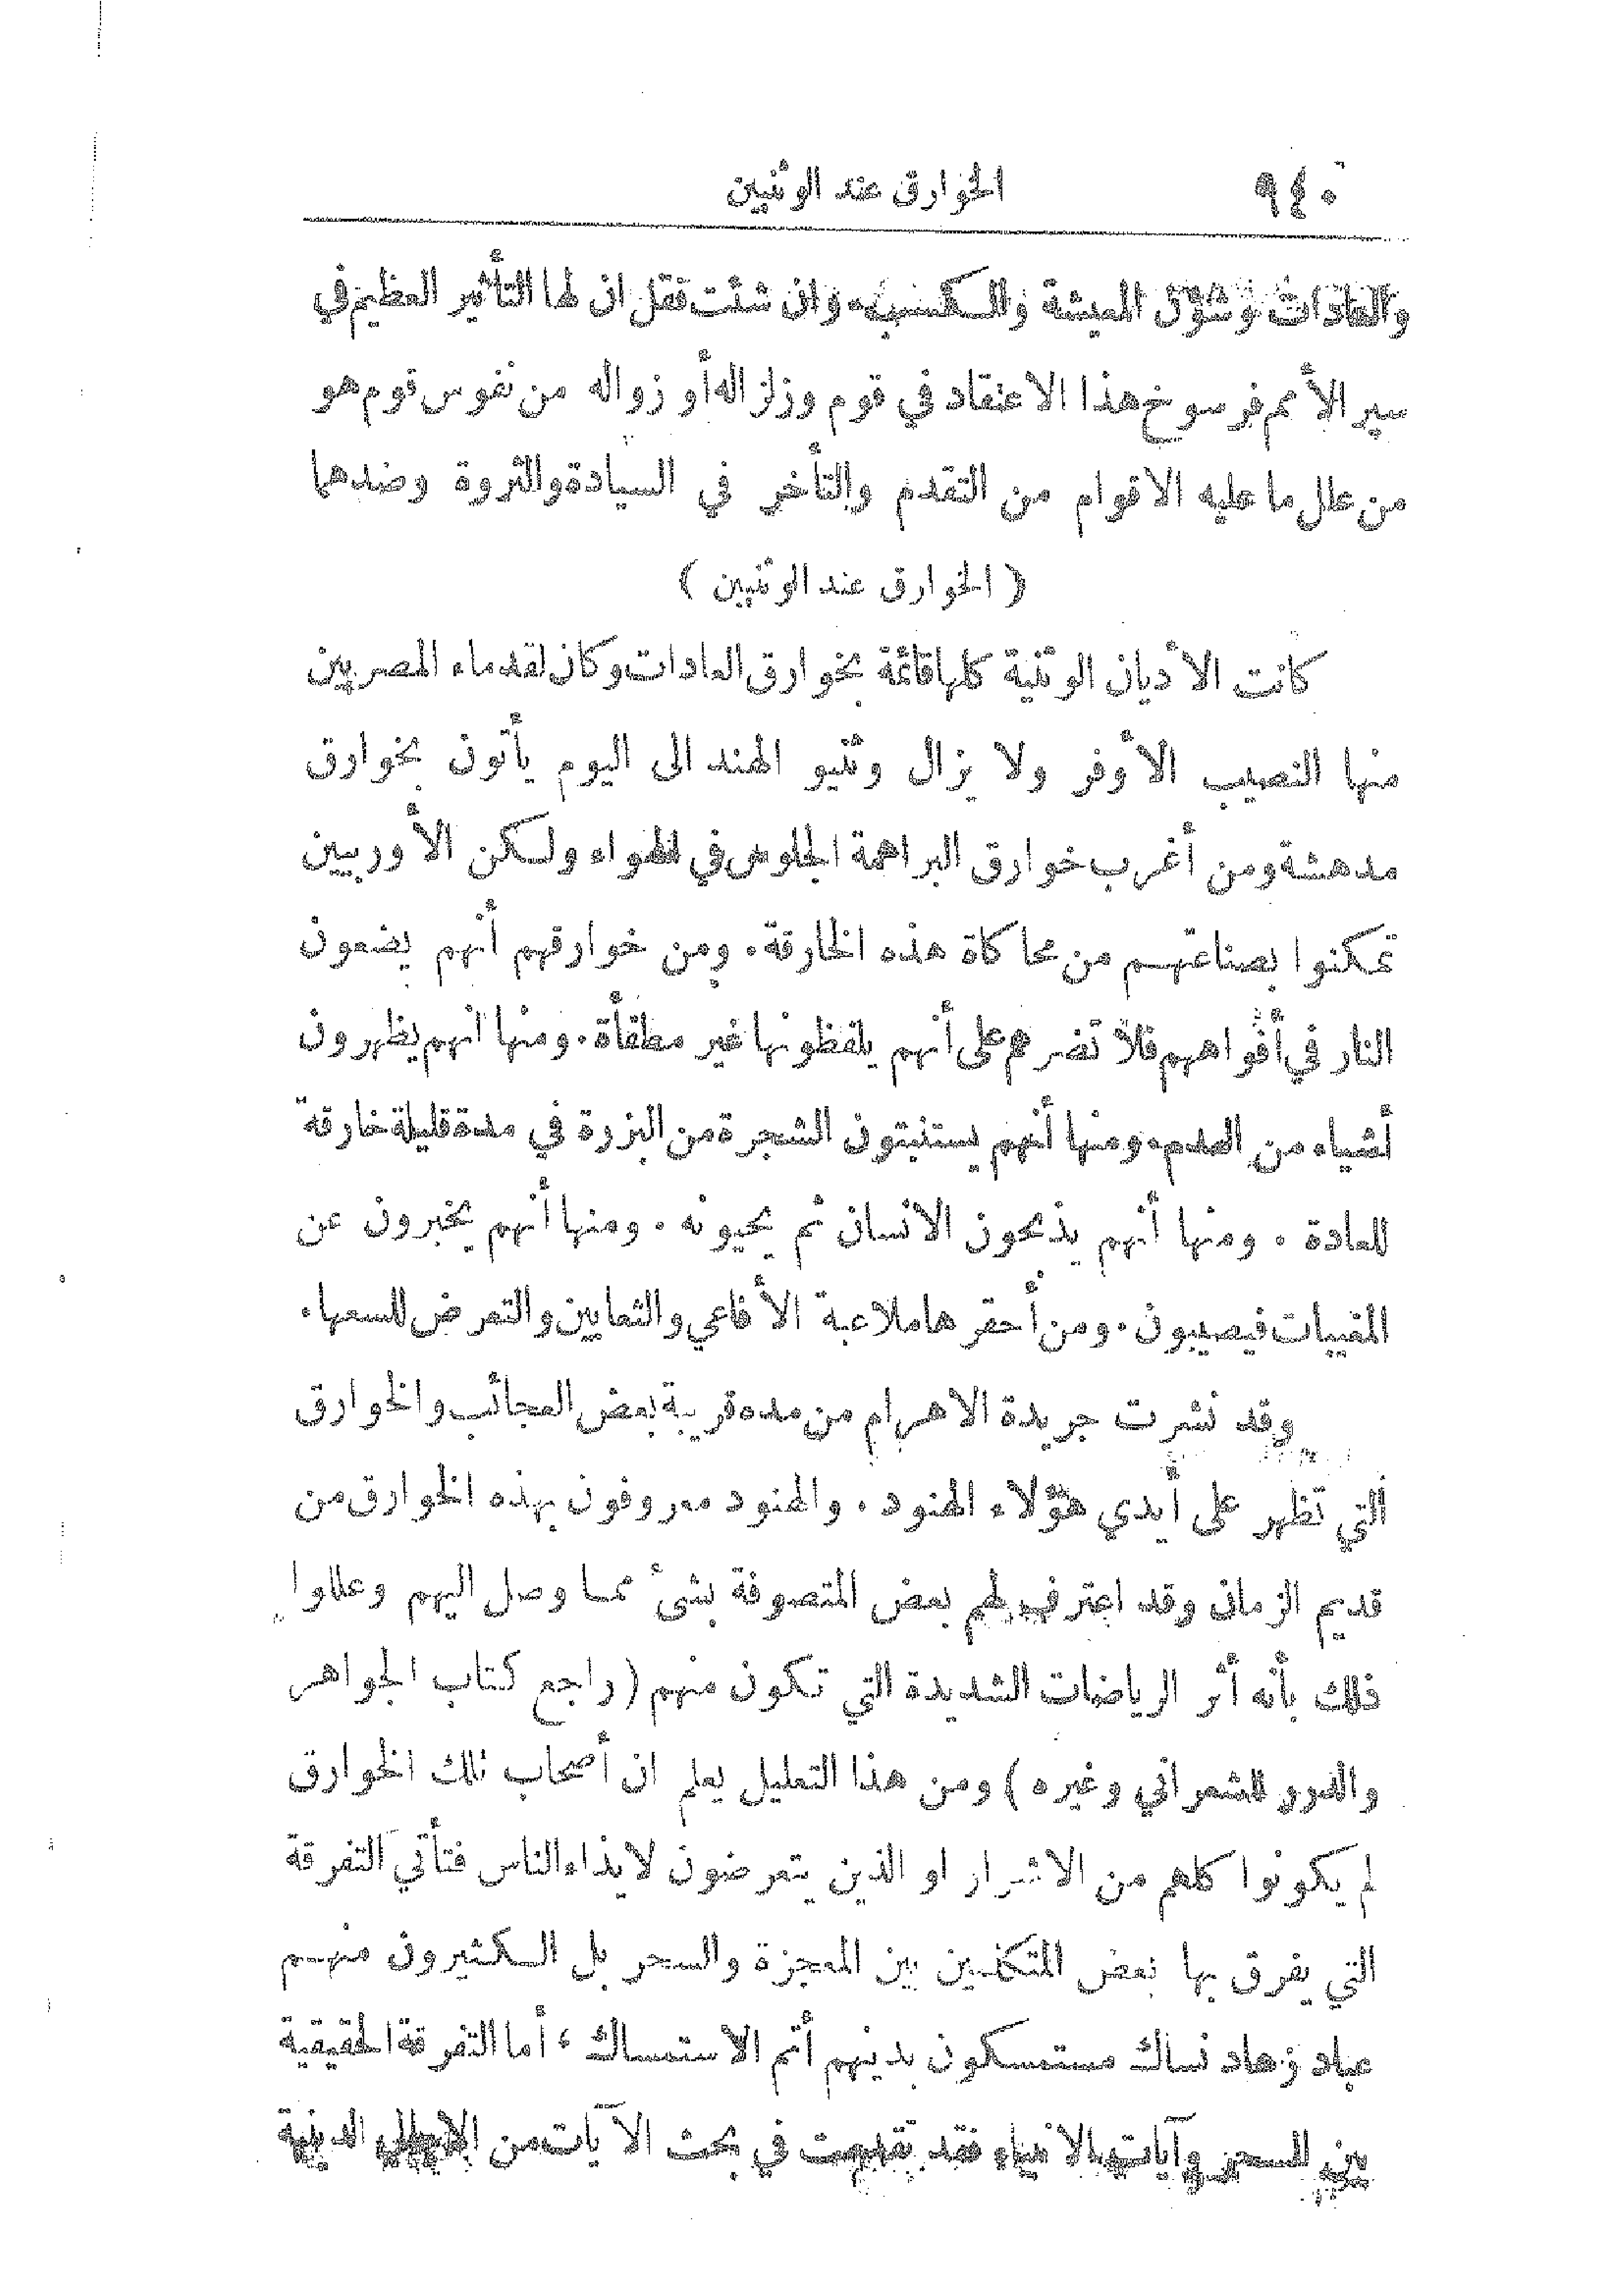 ٩٤٠ الخوارق عند الوثنيين
والعادات وشؤن المعيشة والكسب. وان شئت فقل ان لها التأثير العظيم في
سير الأمم فرسوخ هذا الاعتقاد في قوم وزلزاله أو زواله من نفوس قوم هو
من علل ما عليه الاقوام من التقدم والتأخر في السيادة والثروة وضدهما
( الخوارق عند الوثنيين )
كانت الأديان الوثنية كلها قائمة بخوارق العادات وكان لقدماء المصريين
منها النصيب الأوفر ولا يزال وثنيو الهند الى اليوم يأتون بخوارق
مدهشة ومن أغرب خوارق البراهمة الجلوس في الهواء ولكن الأوربيين
تمكنوا بصناعتهم من محاكاة هذه الخارقة. ومن خوارقهم أنهم يضعون
النار في أفواههم فلا تضرهم على أنهم يلفظونها غير مطفأة. ومنها انهم يظهرون
أشياء من العدم. ومنها أنهم يستنبتون الشجرة من البزرة في مدة قليلة خارقة
للعادة . ومنها أنهم يذبحون الانسان ثم يحيونه . ومنها أنهم يخبرون عن
المغيبات فيصيبون. ومن أحقرها ملاعبة الأفاعي والثعابين والتعرض للسعها.
وقد نشرت جريدة الاهرام من مده قريبة بعض العجائب والخوارق
التي تظهر على أيدي هؤلاء الهنود . والهنود معروفون بهذه الخوارق من
قديم الزمان وقد اعترف لهم بعض المتصوفة بشئ مما وصل اليهم وعللوا
ذلك بأنه أثر الرياضات الشديدة التي تكون منهم (راجع كتاب الجواهر
والدرر للشعراني وغيره ) ومن هذا التعليل يعلم ان أصحاب تلك الخوارق
لم يكونوا كلهم من الاشرار او الذين يتعرضون لايذاء الناس فتأتي التفرقة
التي يفرق بها بعض المتكلمين بين المعجزة والسحر بل الكثيرون منهم
عباد زهاد نساك مستمسكون بدينهم أتم الاستمساك ، أما التفرقة الحقيقية
بين السحر وآيات الانبياء فقد تقدمت في بحث الآيات من الدينية